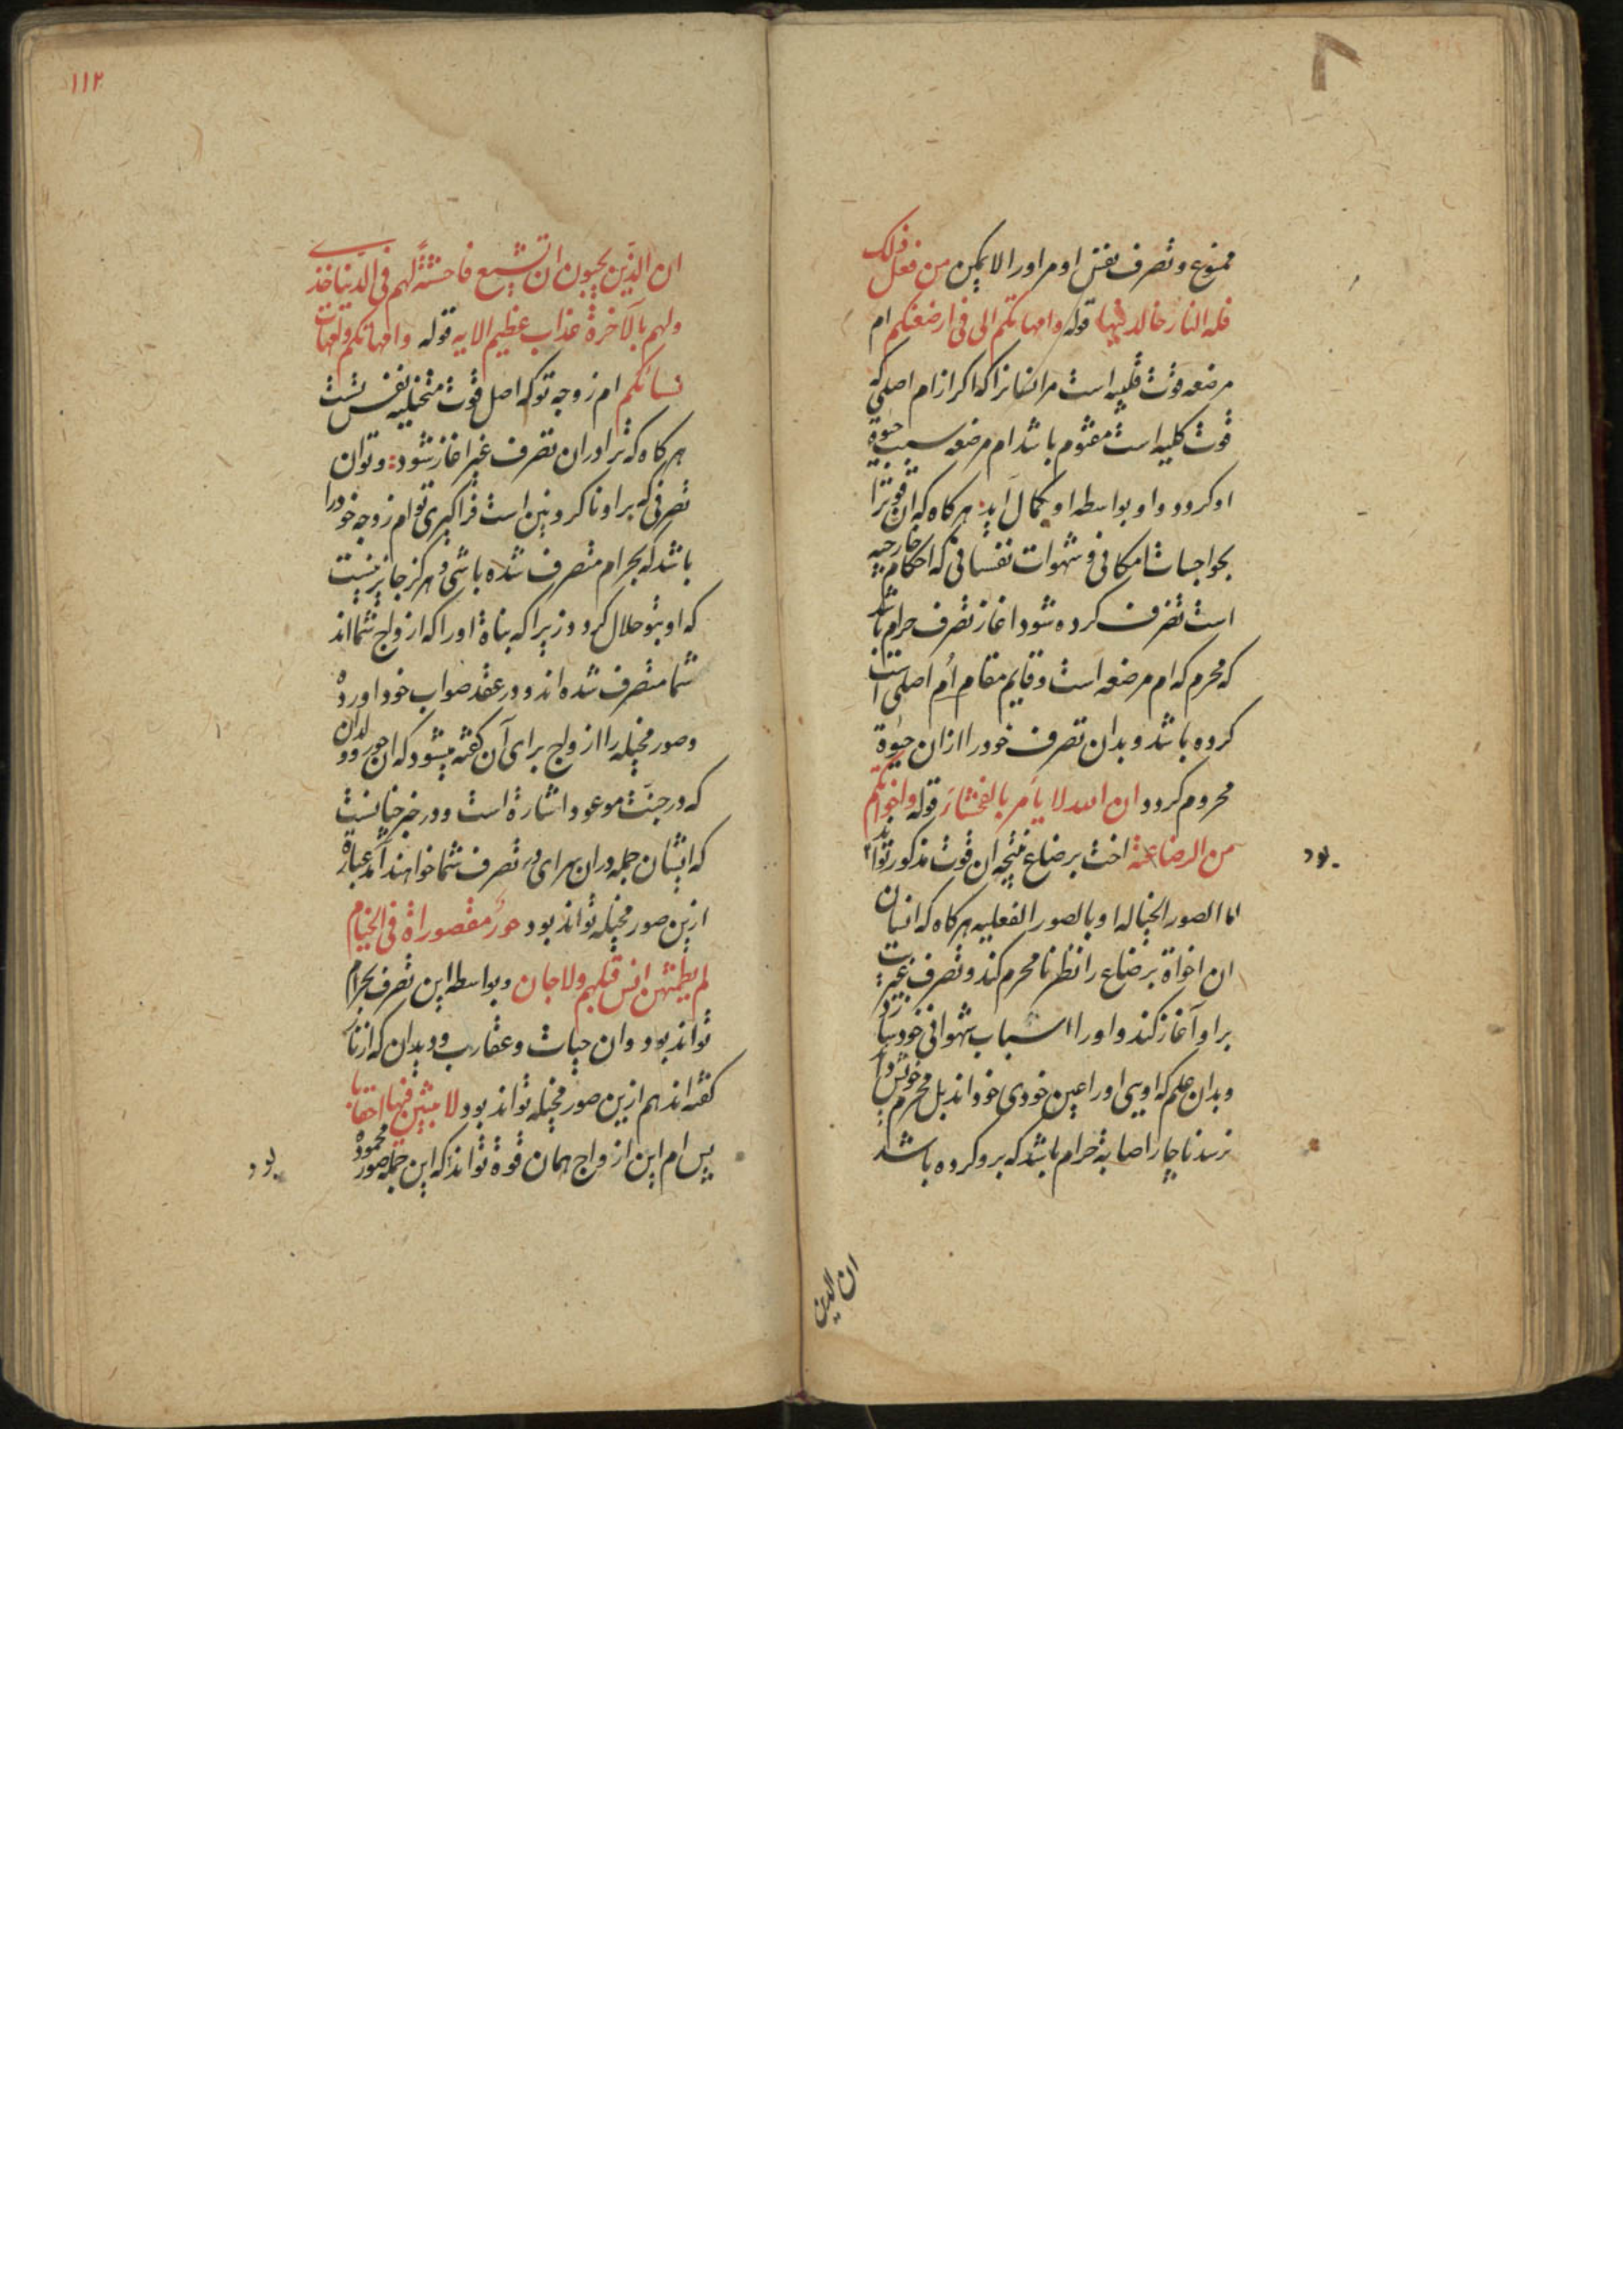 ممنوع و تصرف نفس او مر او را لا یمکن من فعل ذلک
فله النار خالد فیها قوله و امهاتکم التی فی ارضعنکم ام
مرضعه قوت قلبیه است مر انسانرا که اکر از ام اصلی که
قوت کلیه است مفثوم باشد ام مرضعه سبب حیوة
او کردد و او بواسطه او بکمال آید هرکاه که ان قوتزا
بحواجبات امکانی و شهوات نفسانی که احکام خارجیه
است تصرف کرده شود اغاز تصرف حرام باشد
که محرم که ام مرضعه است و قایم مقام اُم اصلی است
کرده باشد و بدان تصرف خود را ازان حیوة
محروم کردد ان الله لا یأمر بالفحشاء قوله و اخواتکم
من الرضاعة اخت برضاع نتیجه ان قوت مذکور تواند
بود
اما الصور الخیاله او بالصور الفعلیه هرکاه که انسان
ان اخواة برضاع را نظر نامحرم کند و تصرف غیریت
بر او آغاز کند و او را اسباب شهوانی خود سازد
و بدان علم که اویی او را عین خودی خود اند بل محرم خویش
نرسد ناچار اصابة حرام باشد که برو کرده باشد
ان الذین
١١٢
ان الذین یحبون ان تشیع فاحشةً لهم فی الدنیا خزی
و لهم بالآخرة عذاب عظیم الایه قوله و امهاتکم و امهات
نسائکم ام زوجه تو که اصل قوت متخیلیه نفس تست
هرکاه که ترا دران تصرف غیر اغاز شود و توان
تصرفی که بر او ناکردنین است فراکیری تو ام زوجه خود را
باشد که بحرام متصرف شده باشی و هرکز جایز نیست
که او بتو حلال کردد زیرا که بناة او را که ازواج شما اند
شما متصرف شده اند و در عقد صواب خود اورده
و صور مخیله را ازواج برای آن کفته میشود که ان حور و ولدان
که در جنّت موعود اشارة است و در خبر چنانست
که ایشان جمله دران سرای در تصرف شما خواهند آمد عبارة
ازین صور مخیله تواند بود حورٌ مقصوراة فی الخیام
لم یطمثهن انس قبلهم و لا جان و بواسطه این تصرف بحرام
تواند بود و ان حیات و عقارب و دیدان که از نار
کفته اند هم ازین صور مخیله تواند بود لابثین فیها احقابا
پس ام این ازواج همان قوة تواند که این جمله صور محموده
بود